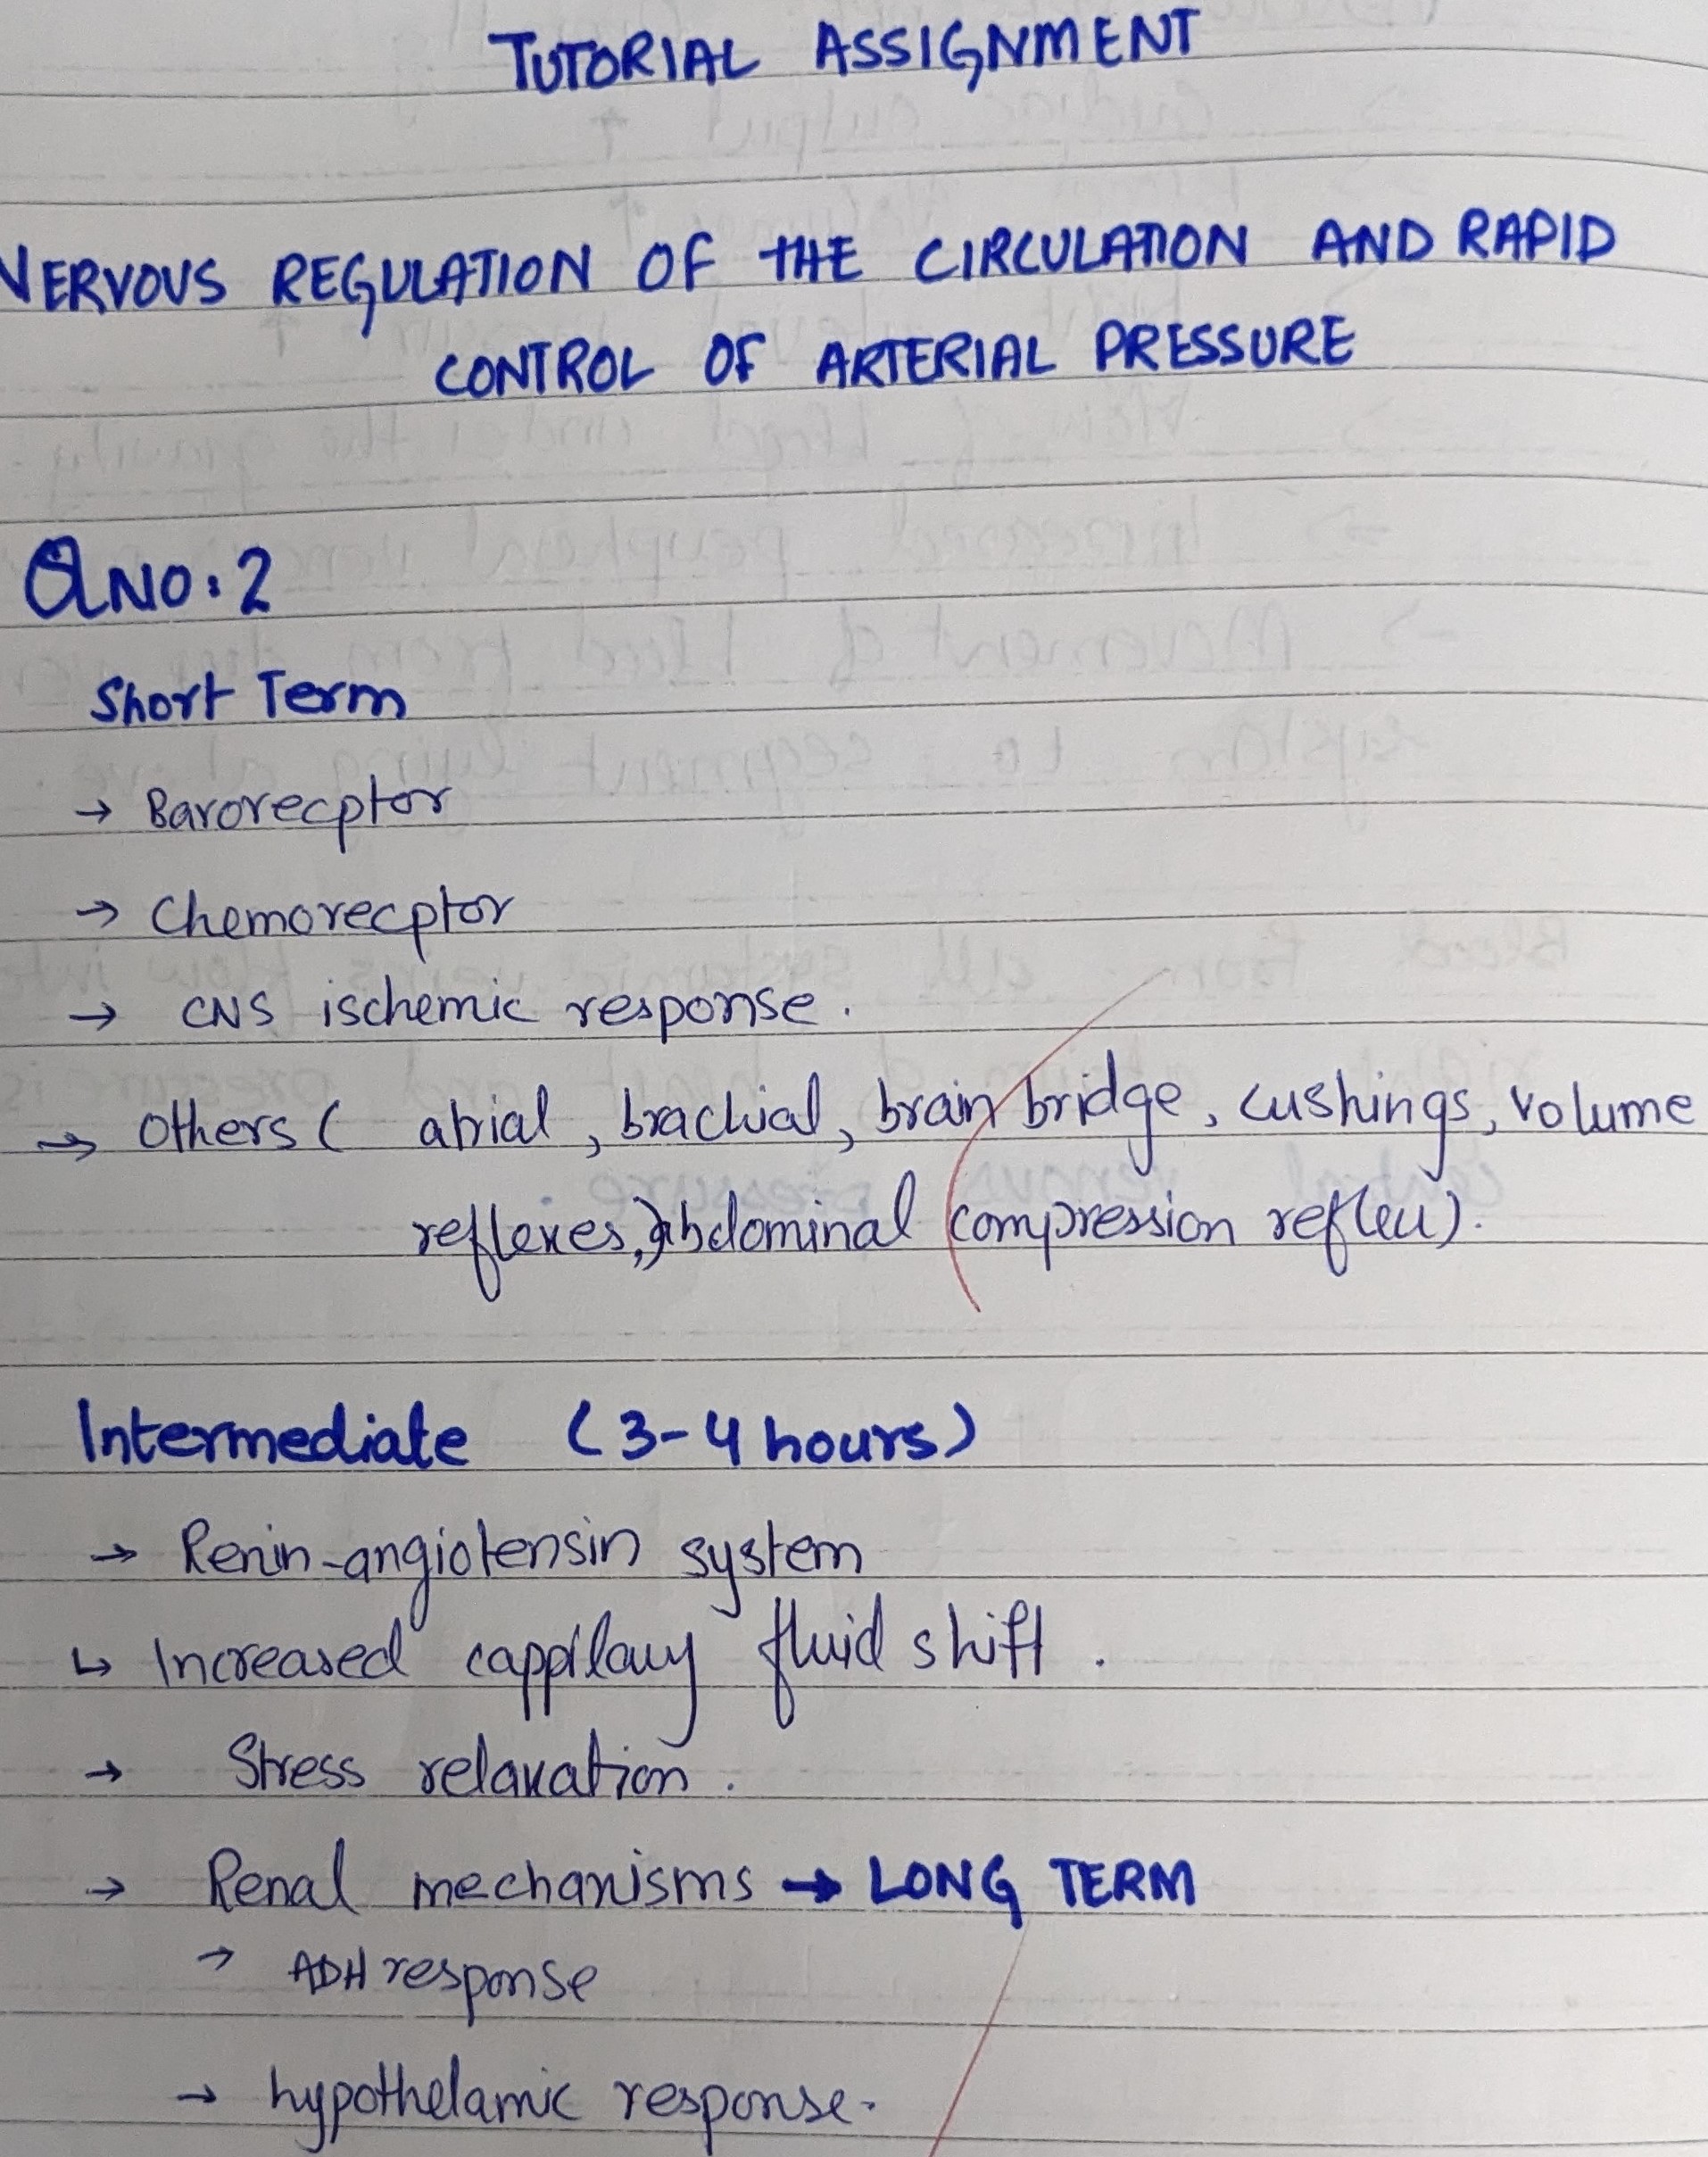 TUTORIAL ASSIGNMENT
NERVOUS REGULATION OF THE CIRCULATION AND RAPID
CONTROL OF ARTERIAL PRESSURE
QNO: 2
Short Term
→ Barorecptor
→ Chemorecptor
→ CNS ischemic response.
→ Others ( atrial, brachial, brain bridge, cushings, volume
reflexes, abdominal compression reflex).
Intermediate (3-4 hours)
→ Renin-angiotensin system
↳ Increased cappilary fluid shift.
→ Stress relaxation.
→ Renal mechanisms → LONG TERM
→ ADH response
→ hypothelamic response.